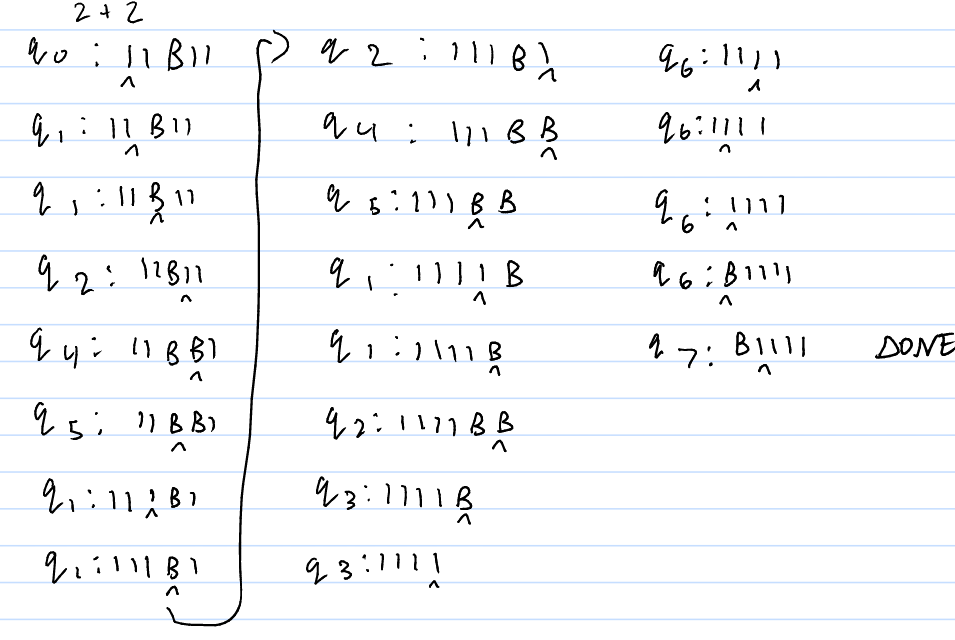 2 + 2
q0 : 11 B11
^
q1 : 11 B11
^
q1 : 11 B 11
^
q2 : 11B11
^
q4 : 11 B B1
^
q5 : 11 B B1
^
q1 : 11 1 B1
^
q1 : 111 B1
^
q2 : 111 B 1
^
q4 : 111 B B
^
q5 : 111 B B
^
q1 : 1111 B
^
q1 : 1111 B
^
q2 : 1111 B B
^
q3 : 1111 B
^
q3 : 1111
^
q6 : 1111
^
q6 : 1111
^
q6 : 1111
^
q6 : B1111
^
q7 : B1111 DONE
^